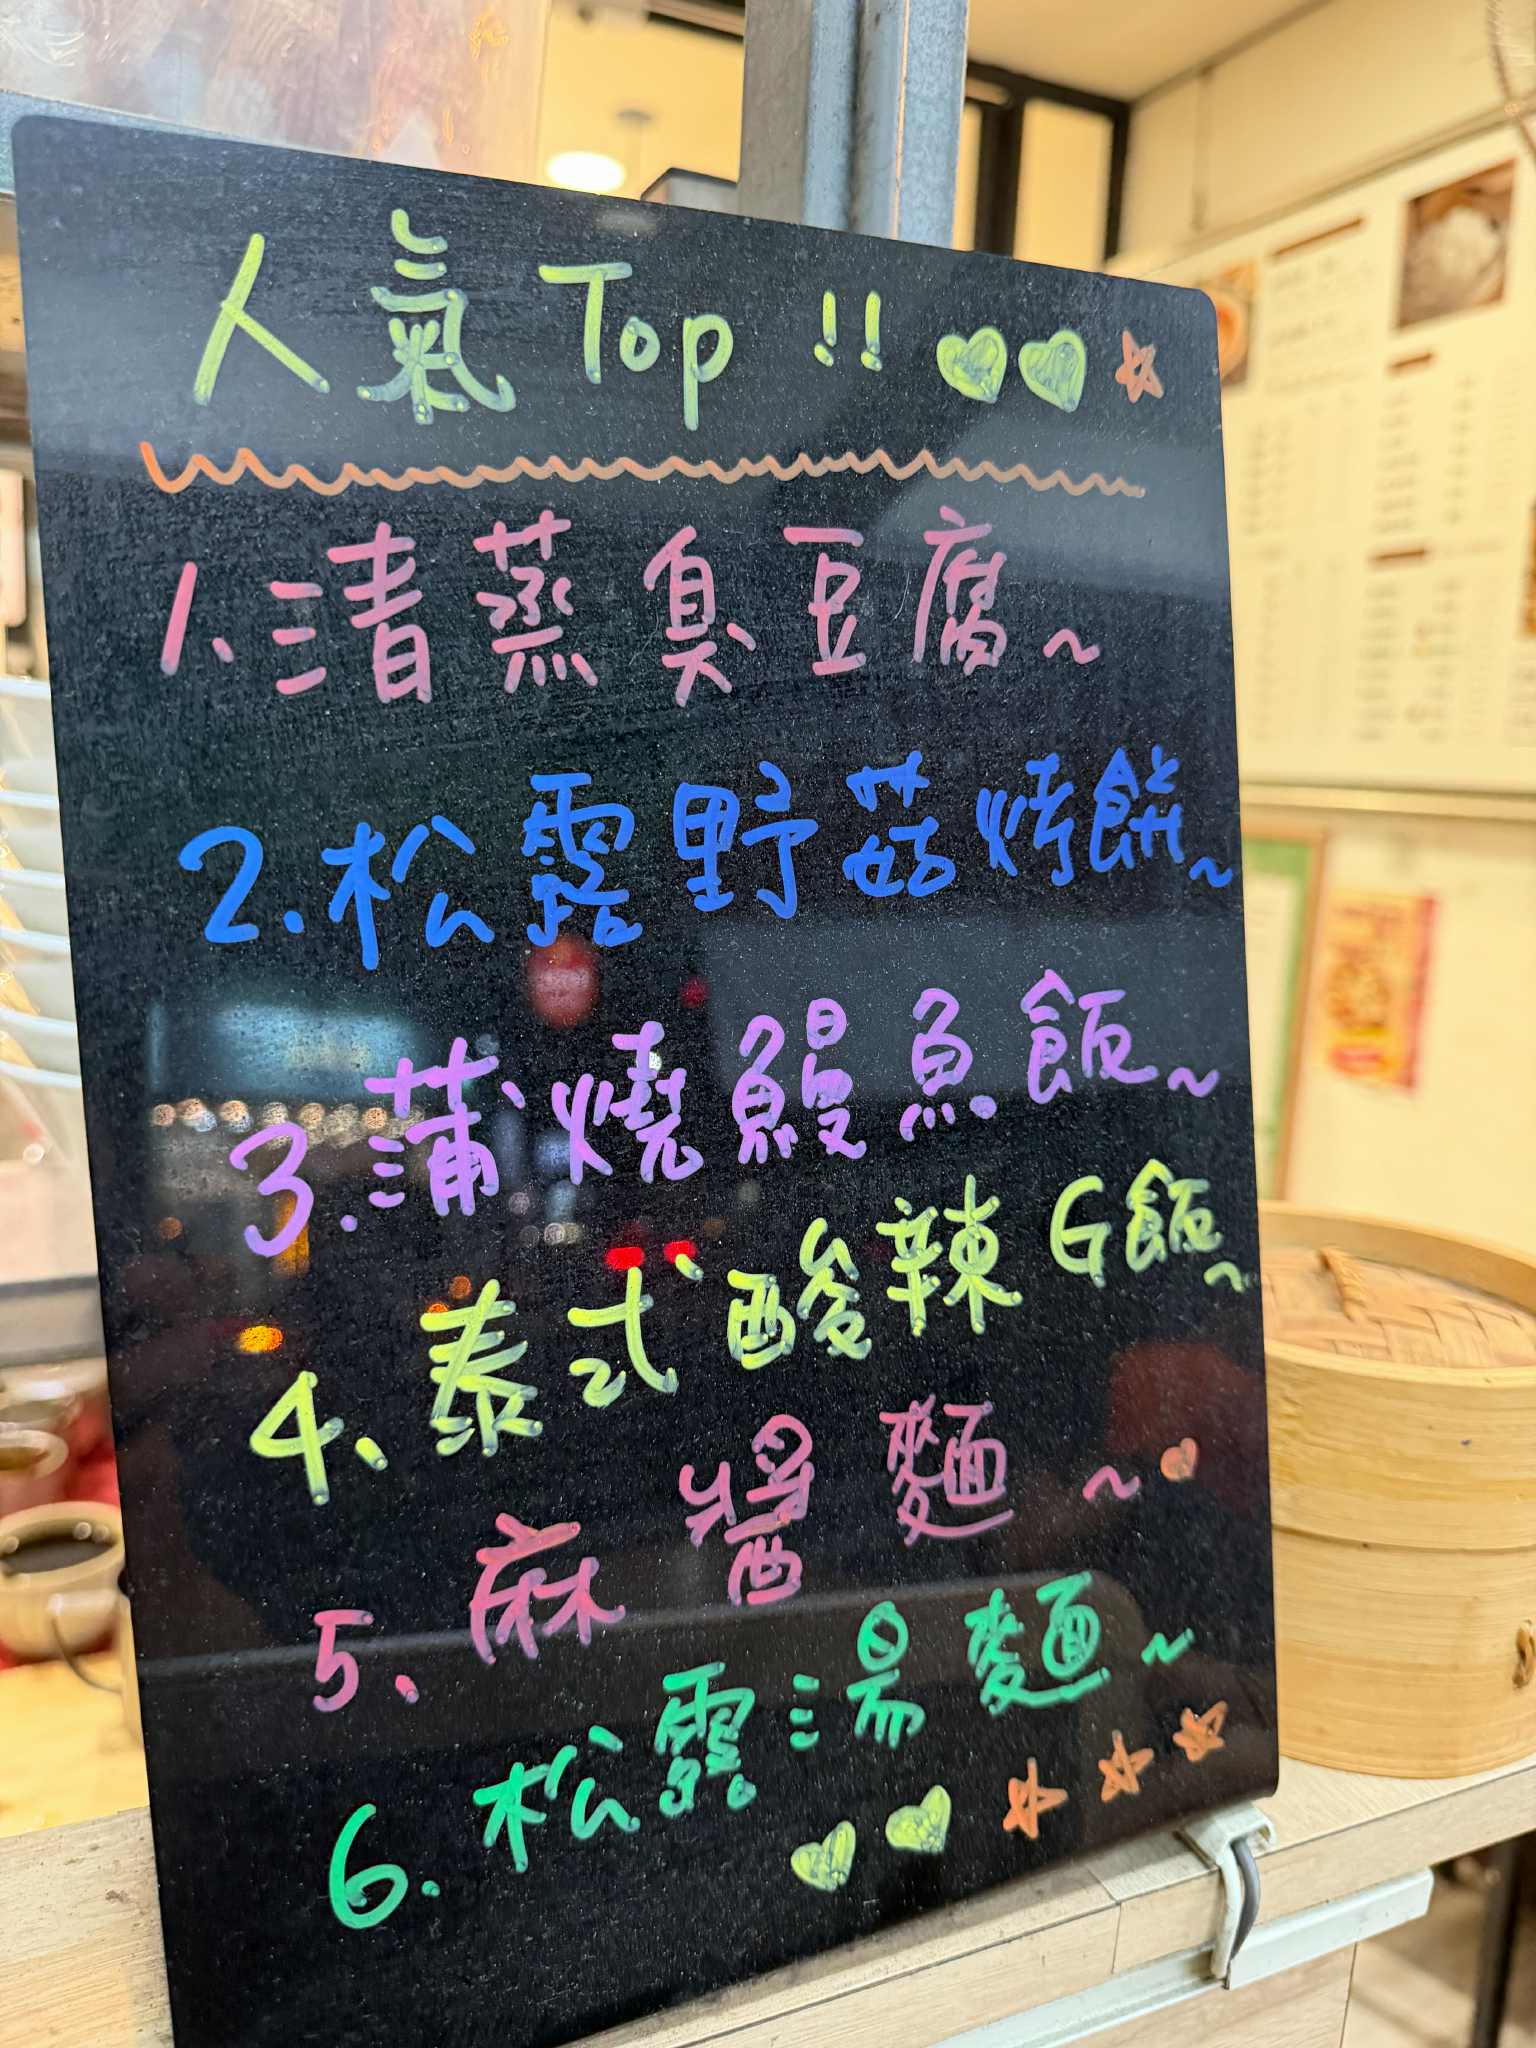 人氣 Top !!
1、清蒸臭豆腐~
2.松露野菇烤餅~
3.蒲燒鰻魚飯~
4、泰式酸辣G飯~
5、麻醬麵~
6.松露湯麵~